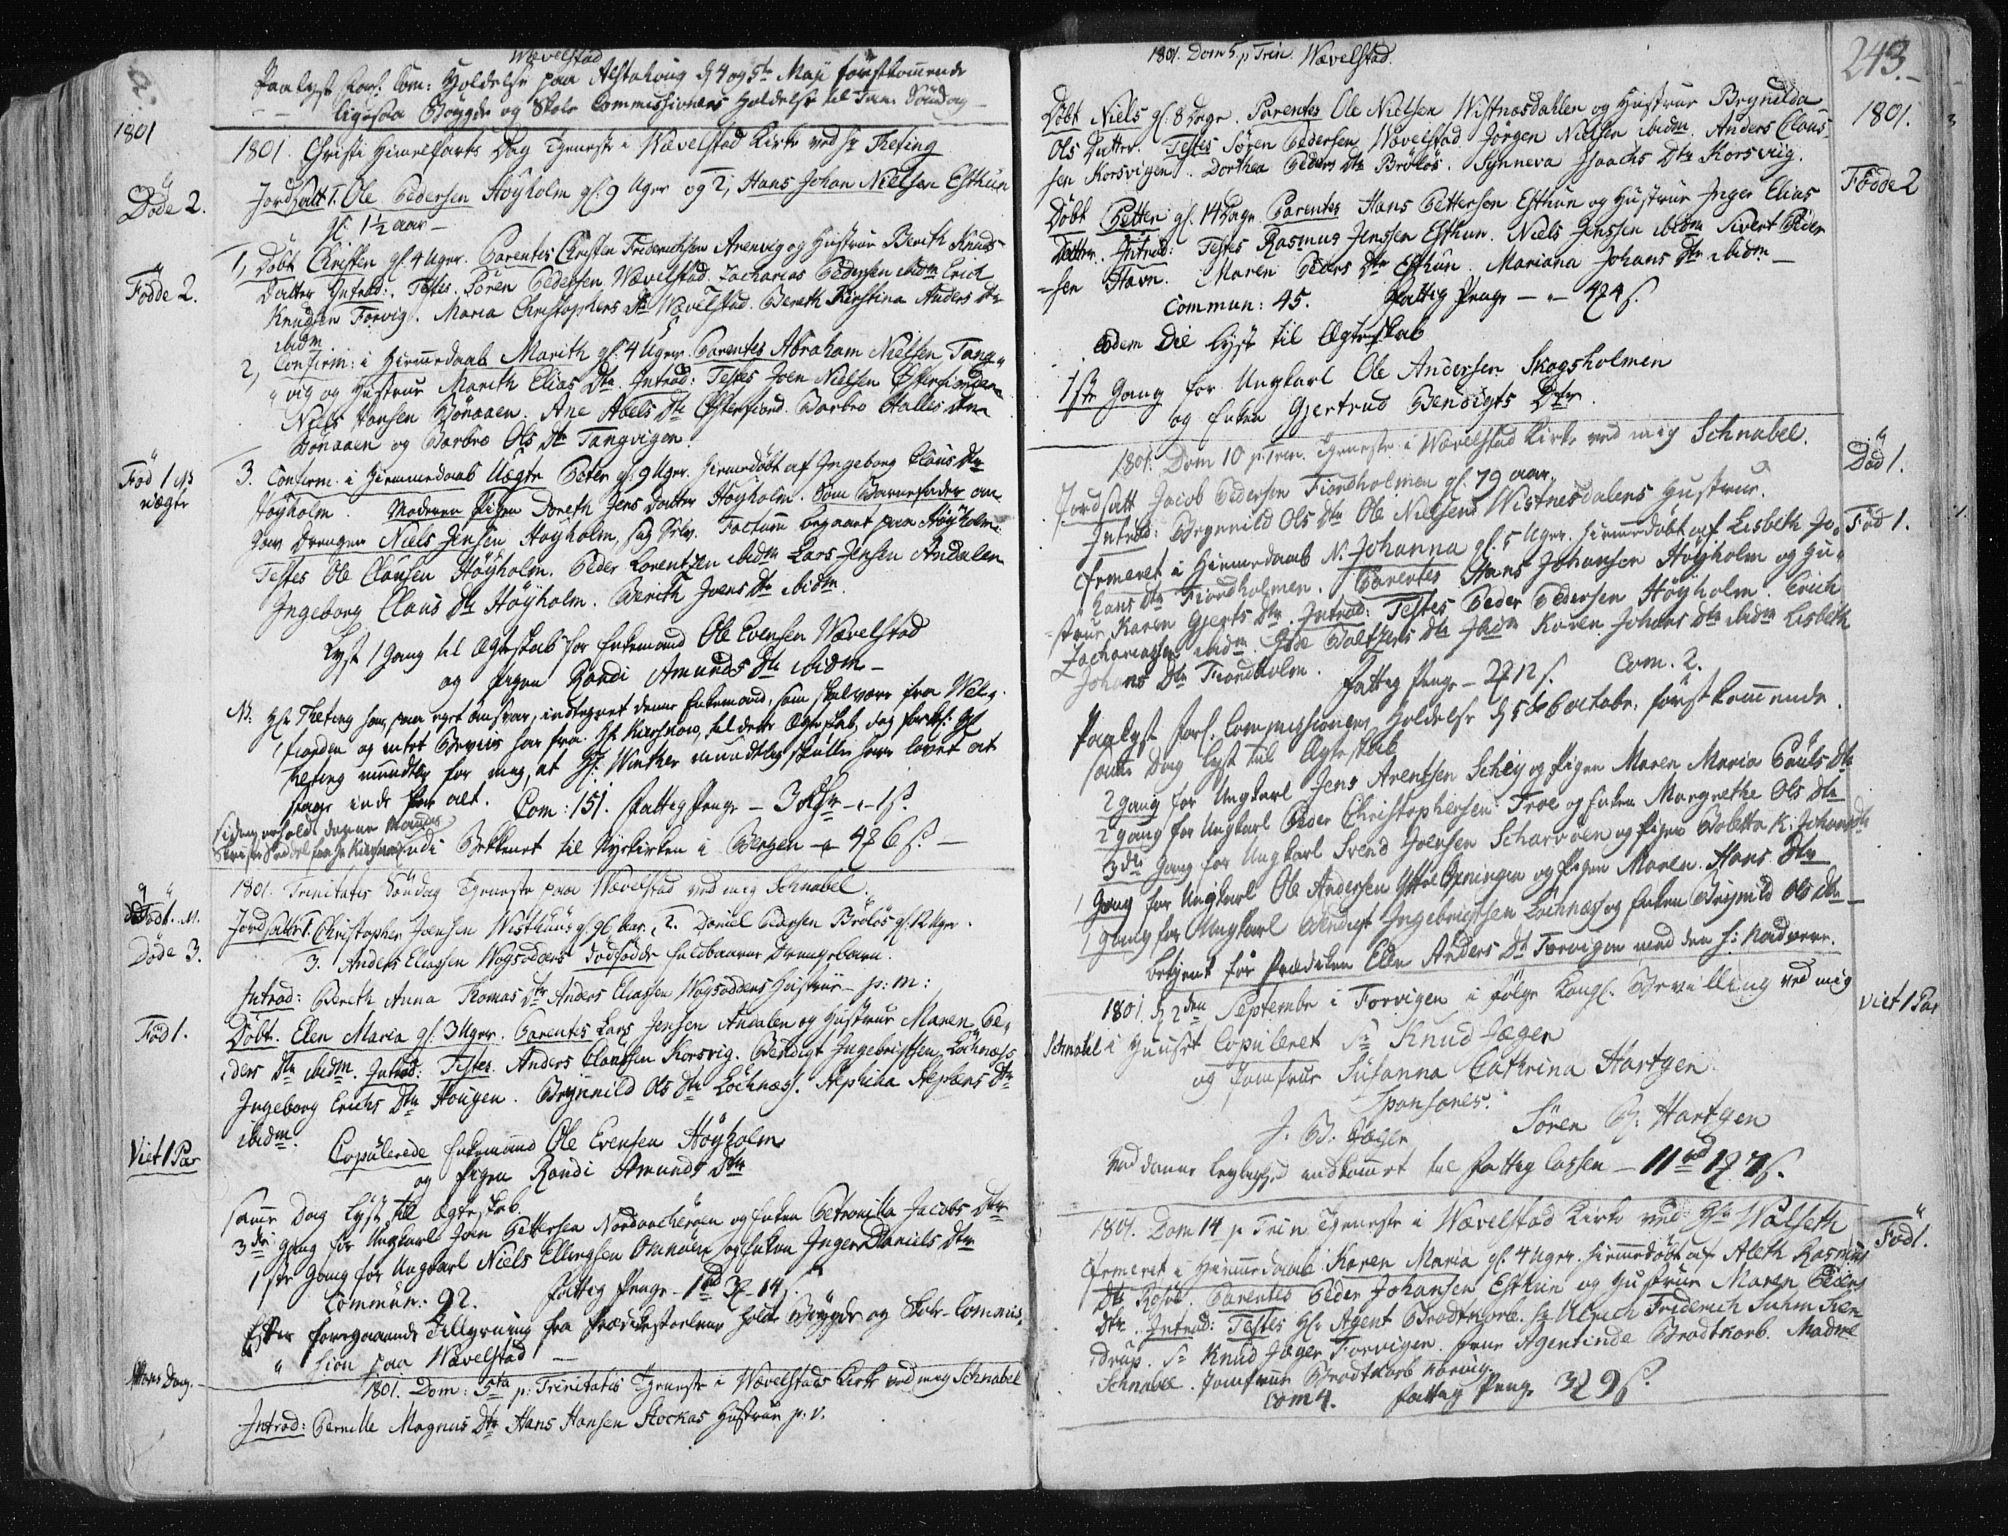 Wævelstad
Paalyst Forl: Com: Holdelse paa Alstahoug d 4 og 5te Maji førstkommende
ligesaa Bøygde og Skole Commissioners Holdelse til Trin: Søndag
1801
1801. Christi Himelfarts Dag Tjeneste i Wævelstad Kirke ved Hr Theting
Døde 2.
Jordsatt 1. Ole Pedersen Høyholm gl. 9 Uger og 2, Hans Johan Nielsen Esthun
gl. 1½ aar
Fødde 2.
1, Døbt Christen gl. 4 Uger. Parentes Christen Friderichsen Arenvig og Hustrue Berith Knuds
Datter Introd:. Testes. Søren Pedersen Wævelstad. Zacharias Pedersen ibidm Erich
Knudsen Forvig. Maria Christophers Dtr Wævelstad. Bereth Kirstina Anders Dtr
ibidm
2, Confirm: i Hiemmedaab Marith gl. 4 Uger. Parentes Abraham Nielsen Tang
vig og Hustrue Marith Elias Dtr. Introd: Testes Joen Nielsen Østerfiorden
Niels Hansen Hønaaen. Ane Axels Dtr Østerfiord. Barbro Halles Dtr
Hønaaen og Barbro Ols Dtr Tangvigen.
Fød 1
uægte
3. Confirm. i Hiemmedaab Uægte Peter gl. 9 Uger. Hiemedøbt af Ingeborg Claus Dtr
Høyholm. Moderen Pigen Doreth Jens Datter Høyholm. Som Barnefader an
gav Drengen Niels Jensen Høyholm, sag Selv. Factum begaaet paa Høyholm.
Testes Ole Clausen Høyholm. Peder Lorentzen ibidm Lars Jensen Andalen
Ingeborg Claus Dtr Høyholm. Berith Joens Dtr ibidm.
Lyst 1 Gang til Ægteskab for Enkemand Ole Evensen Wævelstad
og Pigen Randi Amunds Dtr ibidm
NB: Hr Theting har, paa eget ansvar, indtegnet denne Enkemand, som skal være fra Wel
fiorden og intet Beviis har fra Hr Kirchnow, til dette Ægteskab, dog forkl: Hr
Theting mundtlig for mig, at Hr: Winther mundtlig skulle have lovet at
staae inde for alt. Com: 151. Fattig Penge – 3 – 1 s.
siden erholdt denne Mands
indi Bekkenet til Nyekirken i Bergen – 4 6 s.
1801. Trinitatis Søndag Tjeneste paa Wævelstad ved mig Schnabel.
Død 3.
Jordsatt 1. Christopher Joensen Wisthuus gl. 96 Aar. 2. Daniel Pedersen Brøløs gl. 12 Uger.
3. Anders Eliassen Wogsodders dødfødde fuldbaarne Drengebarn.
Introd: Berith Anna Thomas Dtr Anders Eliassen Wogsoddens Hustrue p: m:
Fød 1.
Døbt. Elen Maria gl. 3 Uger. Parentes Lars Jensen Andalen og Hustrue Maren Pe
ders Dtr ibidm. Introd: Testes. Anders Claussen Korsvig. Bendigt Ingebrigtsen Lochnæss
Ingeborg Erichs Dtr Hougen. Brynnild Ols Dtr Lochnæs. Stephina Stephens Dtr
ibidm.
Viet 1 Par
Copulerede Enkemand Ole Evensen Høyholm
og Pigen Randi Amunds Dtr
samme Dag Lyst til Ægteskab.
3die Gang for Ungkarl Joen Pettersen Nordaacheröen og Enken Petronilla Jacobs Dtr
1ste Gang for Ungkarl Niels Ellingsen Omnöen og Enken Inger Daniels Dtr
Commun: 92. Fattig Penge – 1 rd 3 14 s.
Efter foregaaende Tillysning fra Prædikestoelen holdt Bøygde og Skole-Commis
sion paa Wævelstad
1801. Dom: 5ta p: Trinitatis Tjeneste i Wævelstads Kirke ved mig Schnabel
Introd: Pernille Magnus Dtr Hans Hansen Stockas Hustrue p. v.
1801. Dom 5 p Trin Wævelstad.
243.
1801.
Døbt Niels gl. 8 Dage. Parentes Ole Nielsen Wistnæsdahlen og Hustrue Brynilda
Ols Datter. Testes Søren Pedersen Wævelstad. Jørgen Nielsen ibidm. Anders Claus
sen Korsvigen. Dorthea Peders Dtr Brøløs. Synneva Isaachs Dtr Korsviig.
Fødde 2
Døbt Petter gl. 14 Dage. Parentes Hans Pettersen Esthun og Hustrue Inger Elias
Datter. Introd: Testes Rasmus Jenssen Esthun. Niels Jenssen ibidm Sivert Peder
sen Havn. Maren Peders Dtr Esthun. Mariana Johans Dtr ibidm
Commun: 45. Fattig Penge – 4 4 s.
Eodem Die lyst til Ægteskab
1ste Gang for Ungkarl Ole Andersen Skogsholmen
og Enken Gjertrud Bendigts Dtr.
1801. Dom 10 p. Trin. Tjeneste i Wævelstad Kirke ved mig Schnabel.
Død 1.
Jordsatt Jacob Pedersen Fiordholmen gl. 79 aar.
Introd: Brynnild Ols Dtr Ole Nielsens Wistnesdalens Hustrue.
Fød 1.
Cfirmeret i Hiemmedaab N. Johanna gl. 5 Uger. hiemedøbt af Lisbeth Jo
hans Dtr Fiordholmen. Parentes Hans Johansen Høyholm og Hu
strue Karen Gjerts Dtr. Introd: Testes Peder Pedersen Høyholm. Erich
Zachariassen ibidm. Baltzers Dtr Ibidm Karen Johans Dtr ibidm Lisbeth
Johans Dtr Fiordholm. Fattig Penge – 2 12 s. Com. 2.
Paalyst Forl. Commissioners Holdelse d 5 & 6 octobr: førstkommende.
samme Dag lyst til Ægteskab
2 gang for Ungkarl Jens Arentsen Schey og Pigen Maren Maria Pauls Dtr
2 gang for Ungkarl Peder Christophersen Troe og Enken Margrethe Ols Dtr
3die Gang for Ungkarl Svend Joensen Scharvöen og Pigen Boletta K. Johans Dtr
1 Gang for Ungkarl Ole Andersen Ytre Opningen og Pigen Maren Hans Dtr
1 Gang for Ungkarl Bendigt Ingebrigtsen Lochnæs og Enken Brynild Ols Dtr
betjent for Prædiken Elen Anders Dtr Forvigen med den H: Nadvere.
1801. d 2den Septembr i Forvigen i følge Kongl. Bevilling ved mig
Viet 1 Par
Schnabel i Huuset Copuleret Sr Knud Jæger
og Jomfrue Susanna Cathrina Hartgen.
Sponsores.
J. B. Jæger Søren B: Hartgen
Ved denne Leylighed indkomet til Fattig Cassen – 11 rd 1 7 s.
1801. Dom 14 p Trin Tjeneste i Wævelstad Kirke ved Hr Walseth
Fød 1.
Cfirmeret i Hiemmedaab Karen Maria gl. 4 Uger. hiemmedøbt af Aleth Rasmus
Dtr. Parentes Peder Johansen Esthun og Hustrue Maren Peders
Dtr. Introd: Testes Hr Agent Brodtkorb. Hr Ulrich Friderich Suhm Sten
drup. Sr Knud Jæger Forvigen. Frue Agentinde Brodtkorb. Madme
Schnabel. Jomfrue Brodtkorb
Com 4. Fattig Penge 3 9 s.